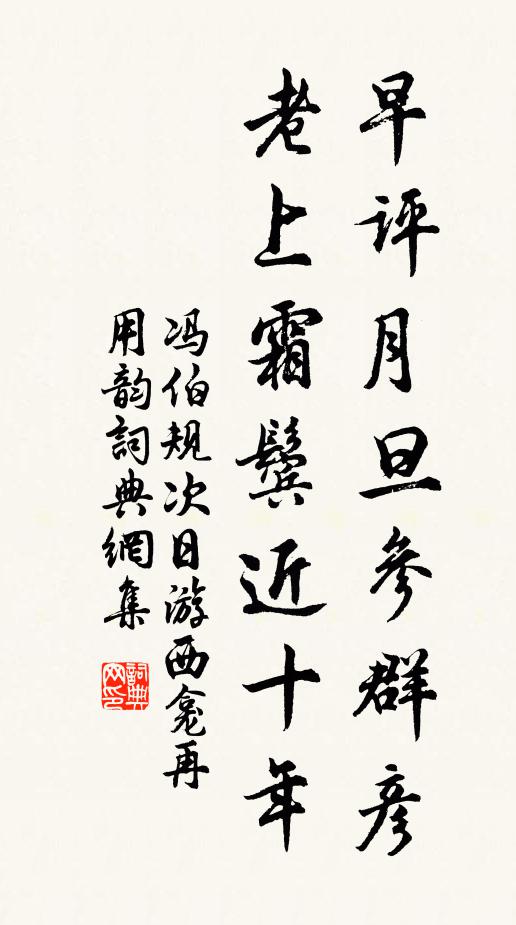 早評月旦參群彥
老上霜鬢近十年
冯伯规次日游西龛再
用韵詞典網集
詞典網印